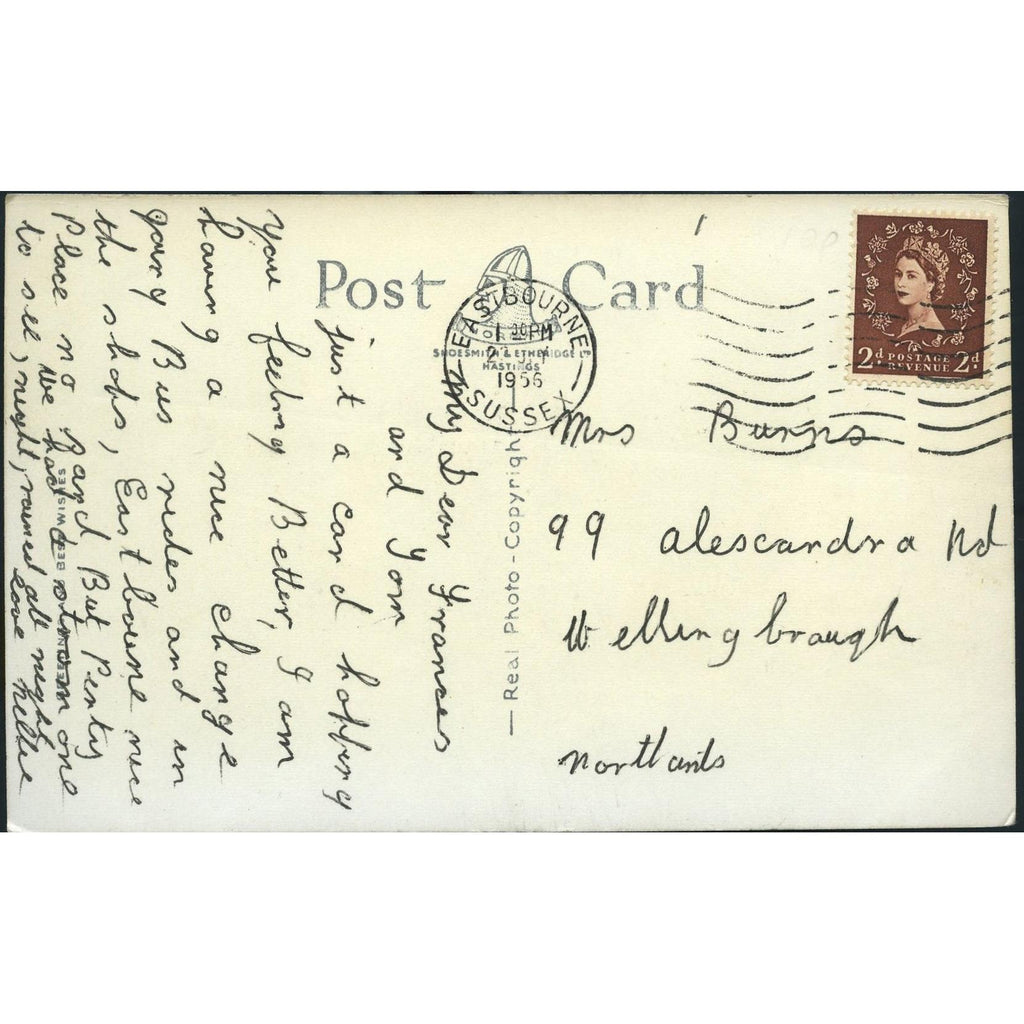 Post Card
EASTBOURNE
1 30PM
1956
SUSSEX
SHOESMITH & ETHERIDGE LTD
HASTINGS
2d POSTAGE 2d
REVENUE
— Real Photo - Copyright
My Dear Frances
and Tom
just a card hopping
you feeling Better, I am
having a nice change
going Bus rides and in
the shobs, East bourne nice
Place no Sand But Penty
to see, we had a storm one
night, rained all night
love Nellie
Mrs Burns
99 alescandra Rd
Wellingbraugh
northants